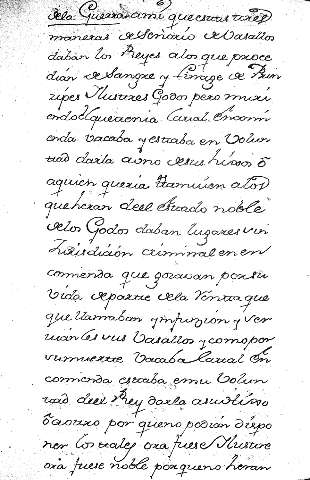 dela Guerra: ami que estas tres
maneras de Señorio de Vasallos
daban los Reyes alos que proce
dian de Sangre y Linage de Prin
cipes Ilustres Godos pero muri
endo el que tenia la tal Encomi
enda vacaba y estaba en Volun
tad darla auno de sus hixos ô
aquien queria tamuien alos
que heran de el estado noble
de los Godos daban lugares sin
Jurisdizion criminal en en
comienda que gozavan por su
vida departe dela Renta que
que llamaban ynfurzion y ser
uian les sus Vasallos y como por
su muerte Vacaba la tal En
comienda estaba en su Volun
tad de el Rey darla a su hixo
ô a otro por que no podian dispo
ner los tales ora fuese Ilustre
ora fuese noble porque no heran